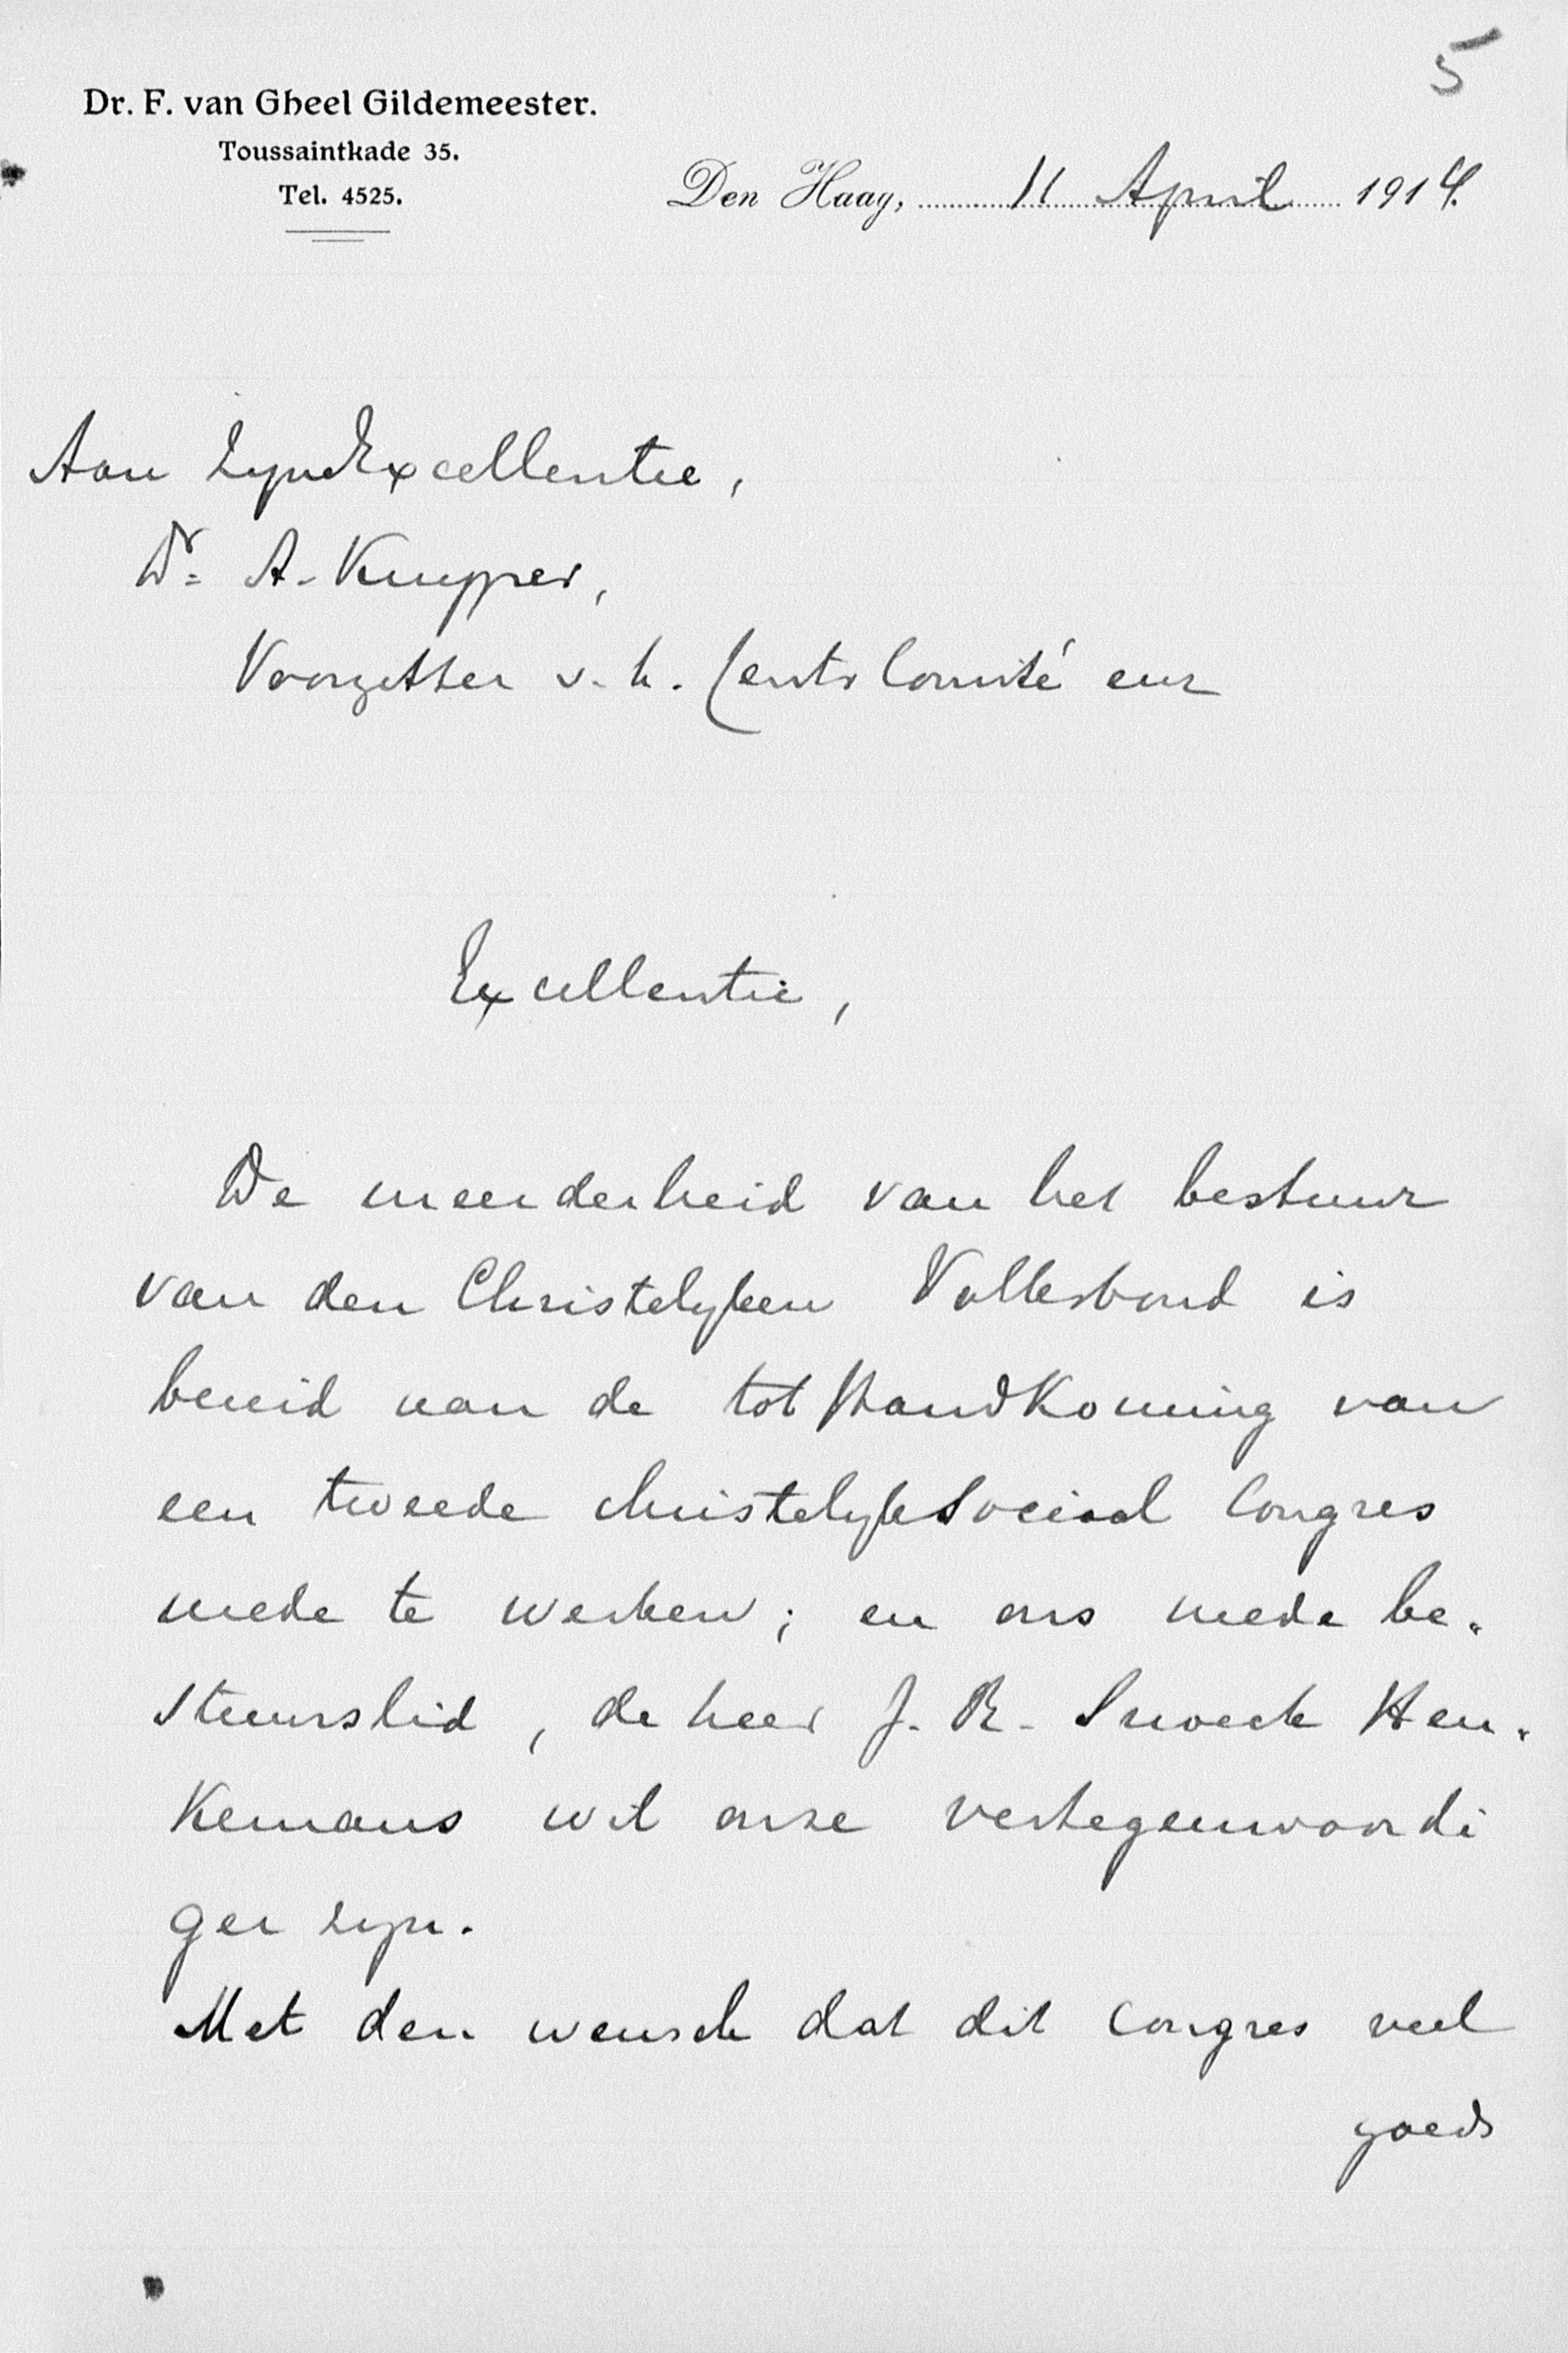 5
Dr. F. van Gheel Gildemeester.
Toussaintkade 35.
Tel. 4525.
Den Haag, 11 April 1914.
Aan Zyne Excellentie,
Dr. A. Kuyper,
Voorzitter v. h. Centr Comité enz
Excellentie,
De meerderheid van het bestuur
van den Christelyken Volksbond is
bereid aan de totstandkoming van
een tweede christelyk Sociaal Congres
mede te werken; en ons mede be-
stuurslid, de heer J. R. Snoeck Hen-
kemans wil onze vertegenwoordi
ger zyn.
Met den wensch dat dit Congres veel
goeds